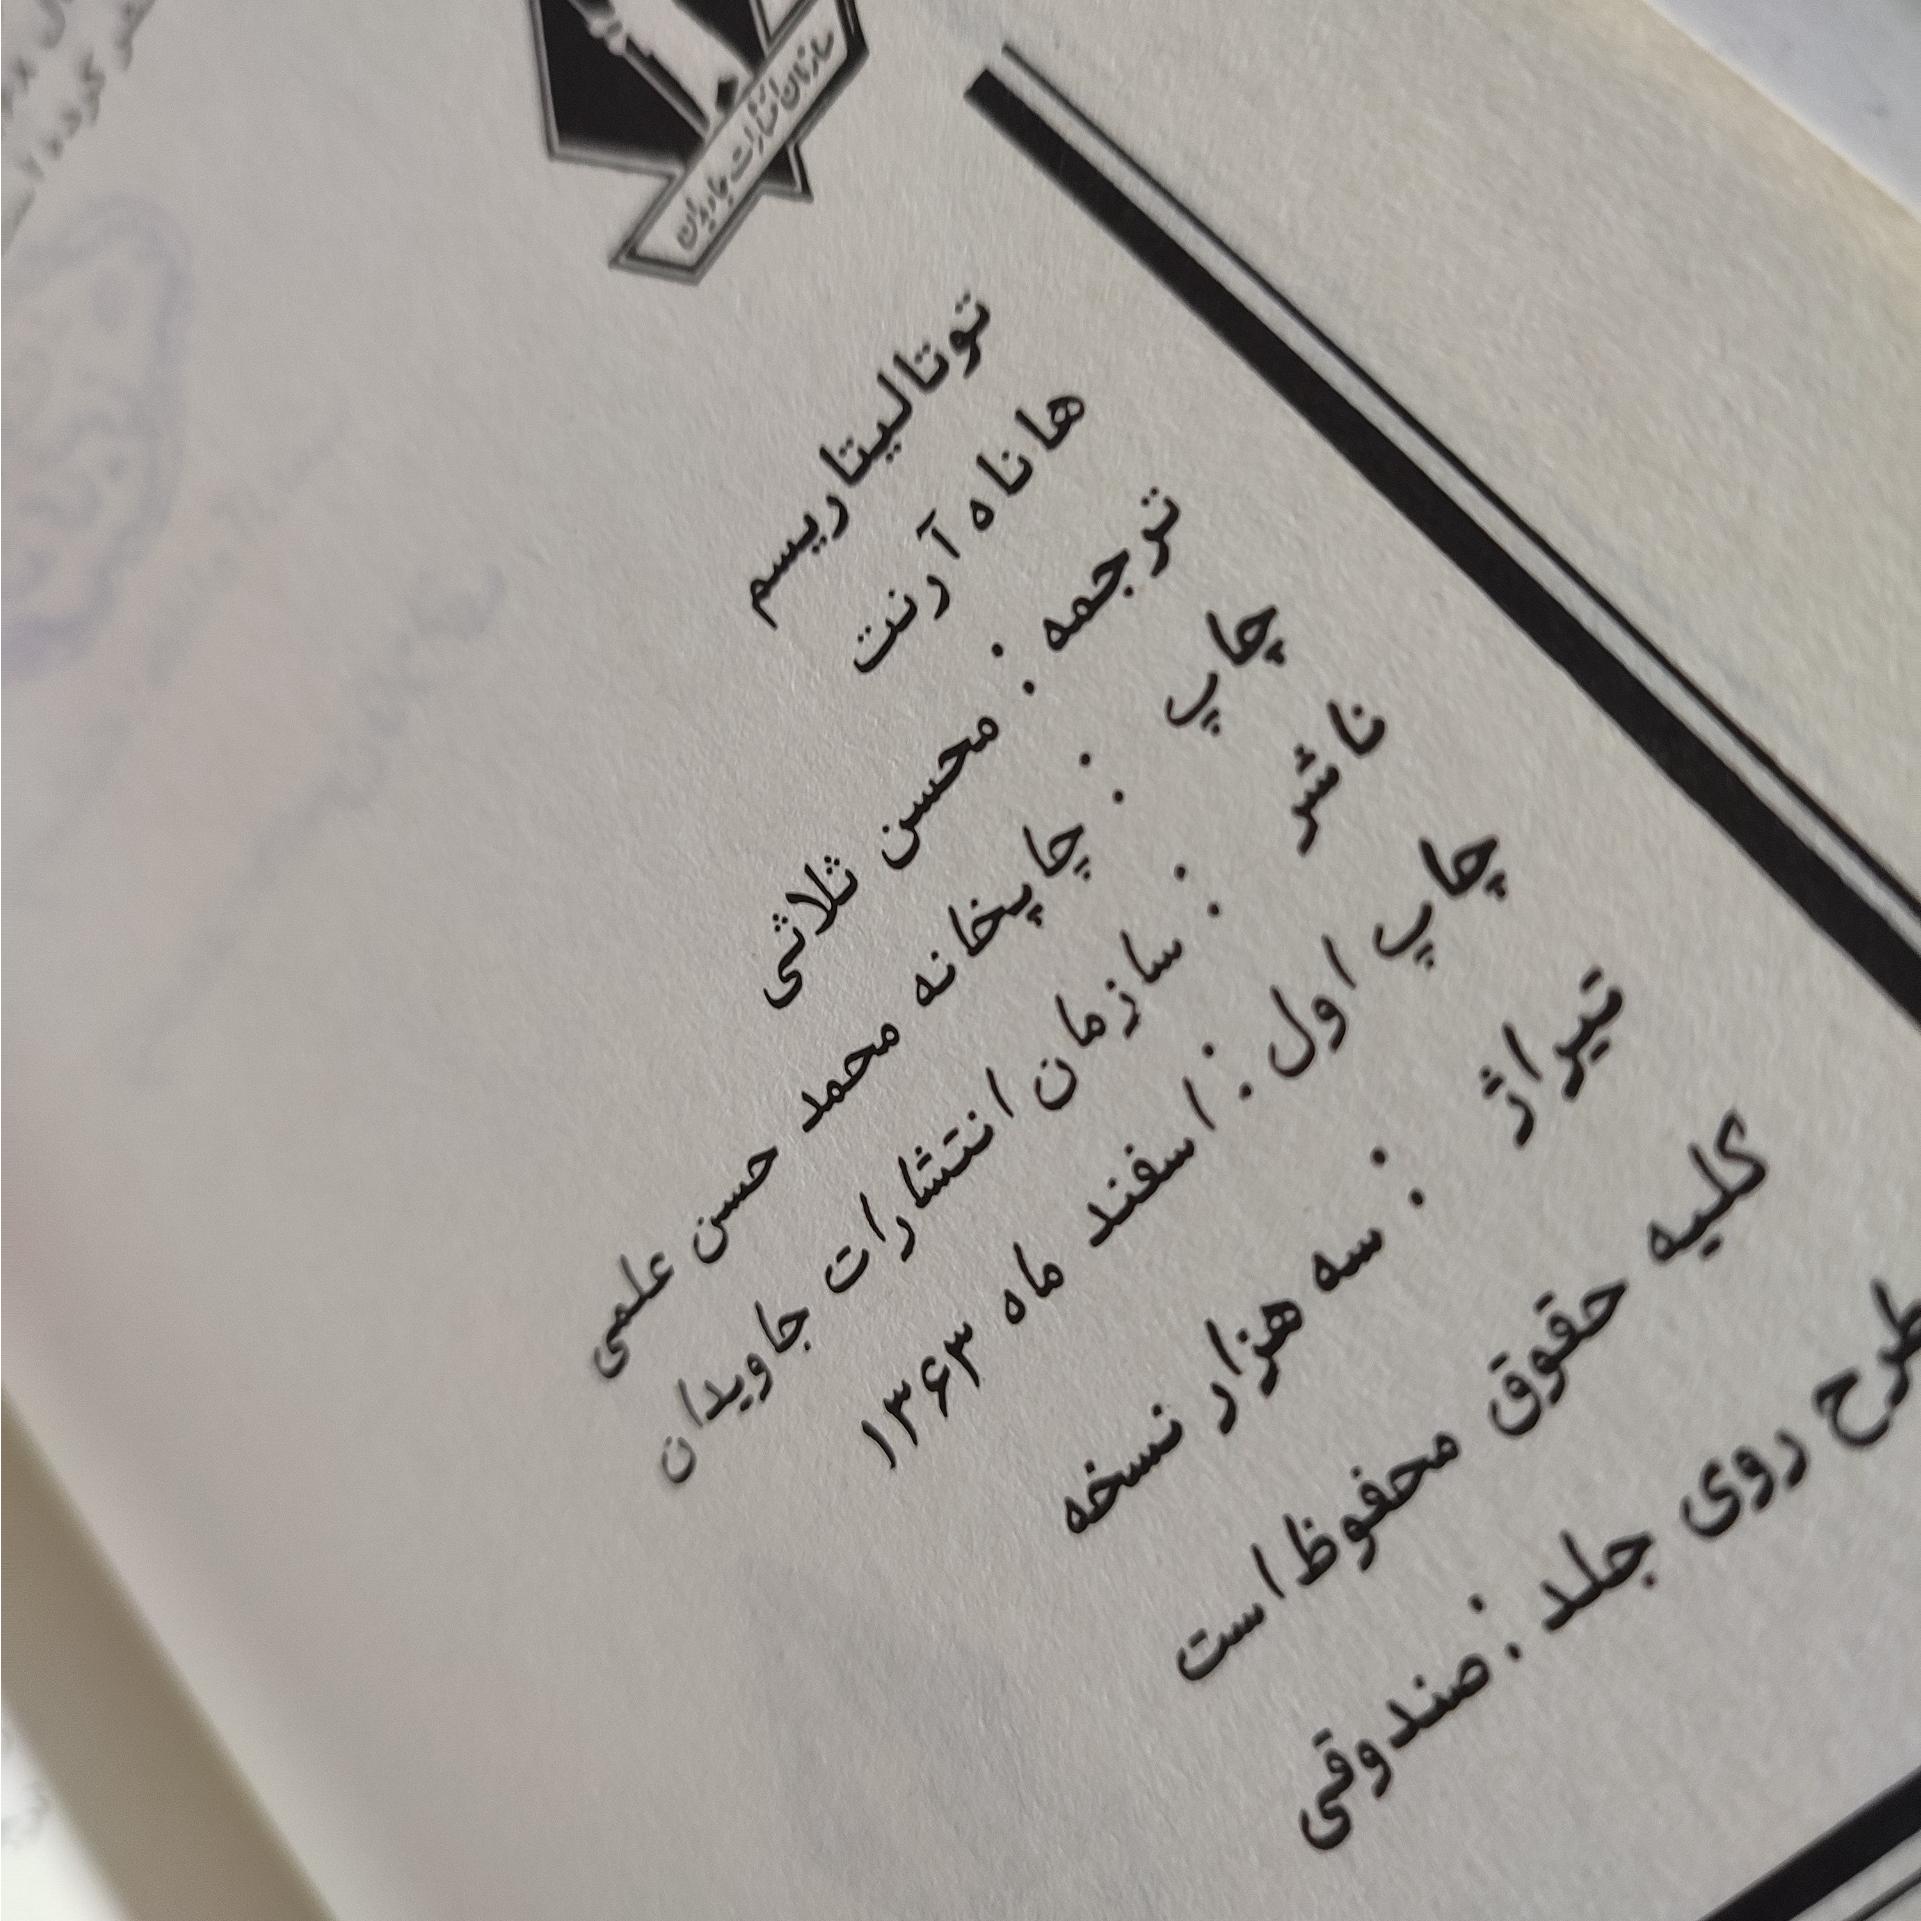 سازمان انتشارات جاویدان
توتالیتاریسم
هاناه آرنت
ترجمه : محسن ثلاثی
چاپ : چاپخانه محمد حسن علمی
ناشر : سازمان انتشارات جاویدان
چاپ اول : اسفند ماه ۱۳۶۳
تیراژ : سه هزار نسخه
کلیه حقوق محفوظ است
طرح روی جلد : صندوقی